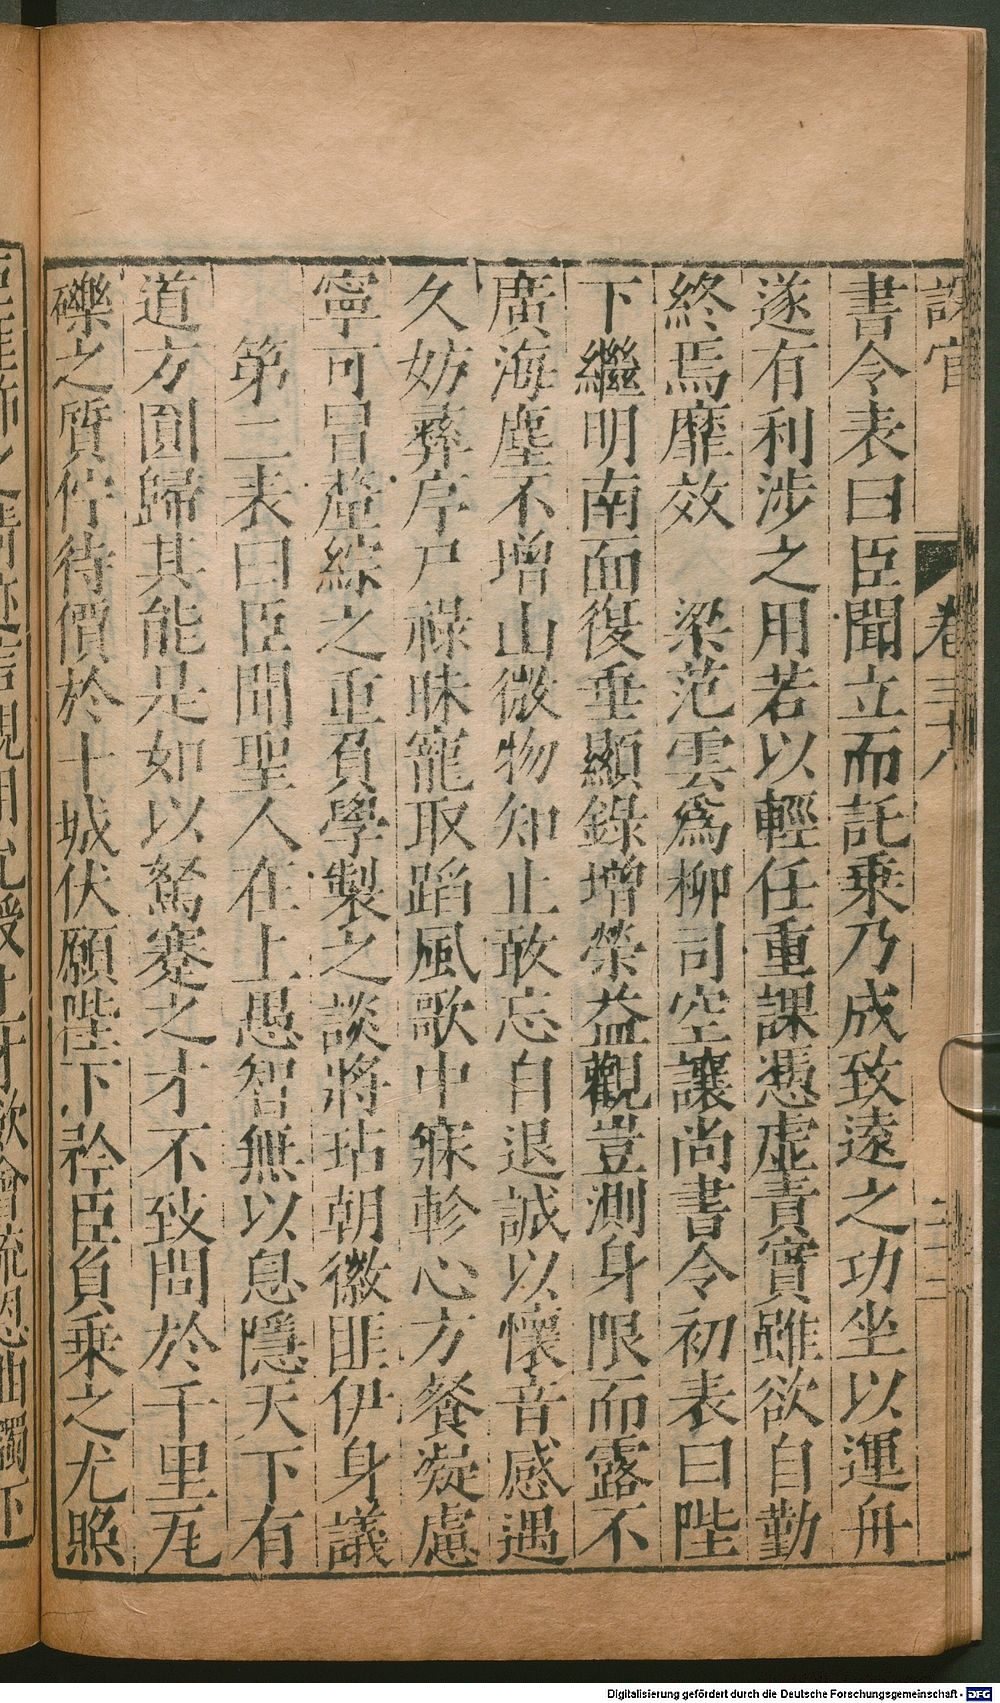 書令表曰臣聞立而託乗乃成致遠之功坐以運舟
遂有利涉之用若以輕任重課憑虛責實雖欲自勤
終焉靡效　梁范雲爲柳司空讓尚書令初表曰陛
下繼明南面復垂顯錄增榮益觀豈測身限而露不
廣海塵不增山微物知止敢忘自退誠以懷音感遇
久妨彞序尸祿昧寵取蹈風歌中寐軫心方餐凝慮
寧可冒釐綜之重負學製之談將玷朝徽匪伊身議
第二表曰臣聞聖人在上愚智無以息隱天下有
道方圓歸其能是如以駑蹇之才不致問於千里瓦
礫之質佇待價於十城伏願陛下矜臣負乗之尤照
卷三十八
Digitalisierung gefördert durch die Deutsche Forschungsgemeinschaft - DFG